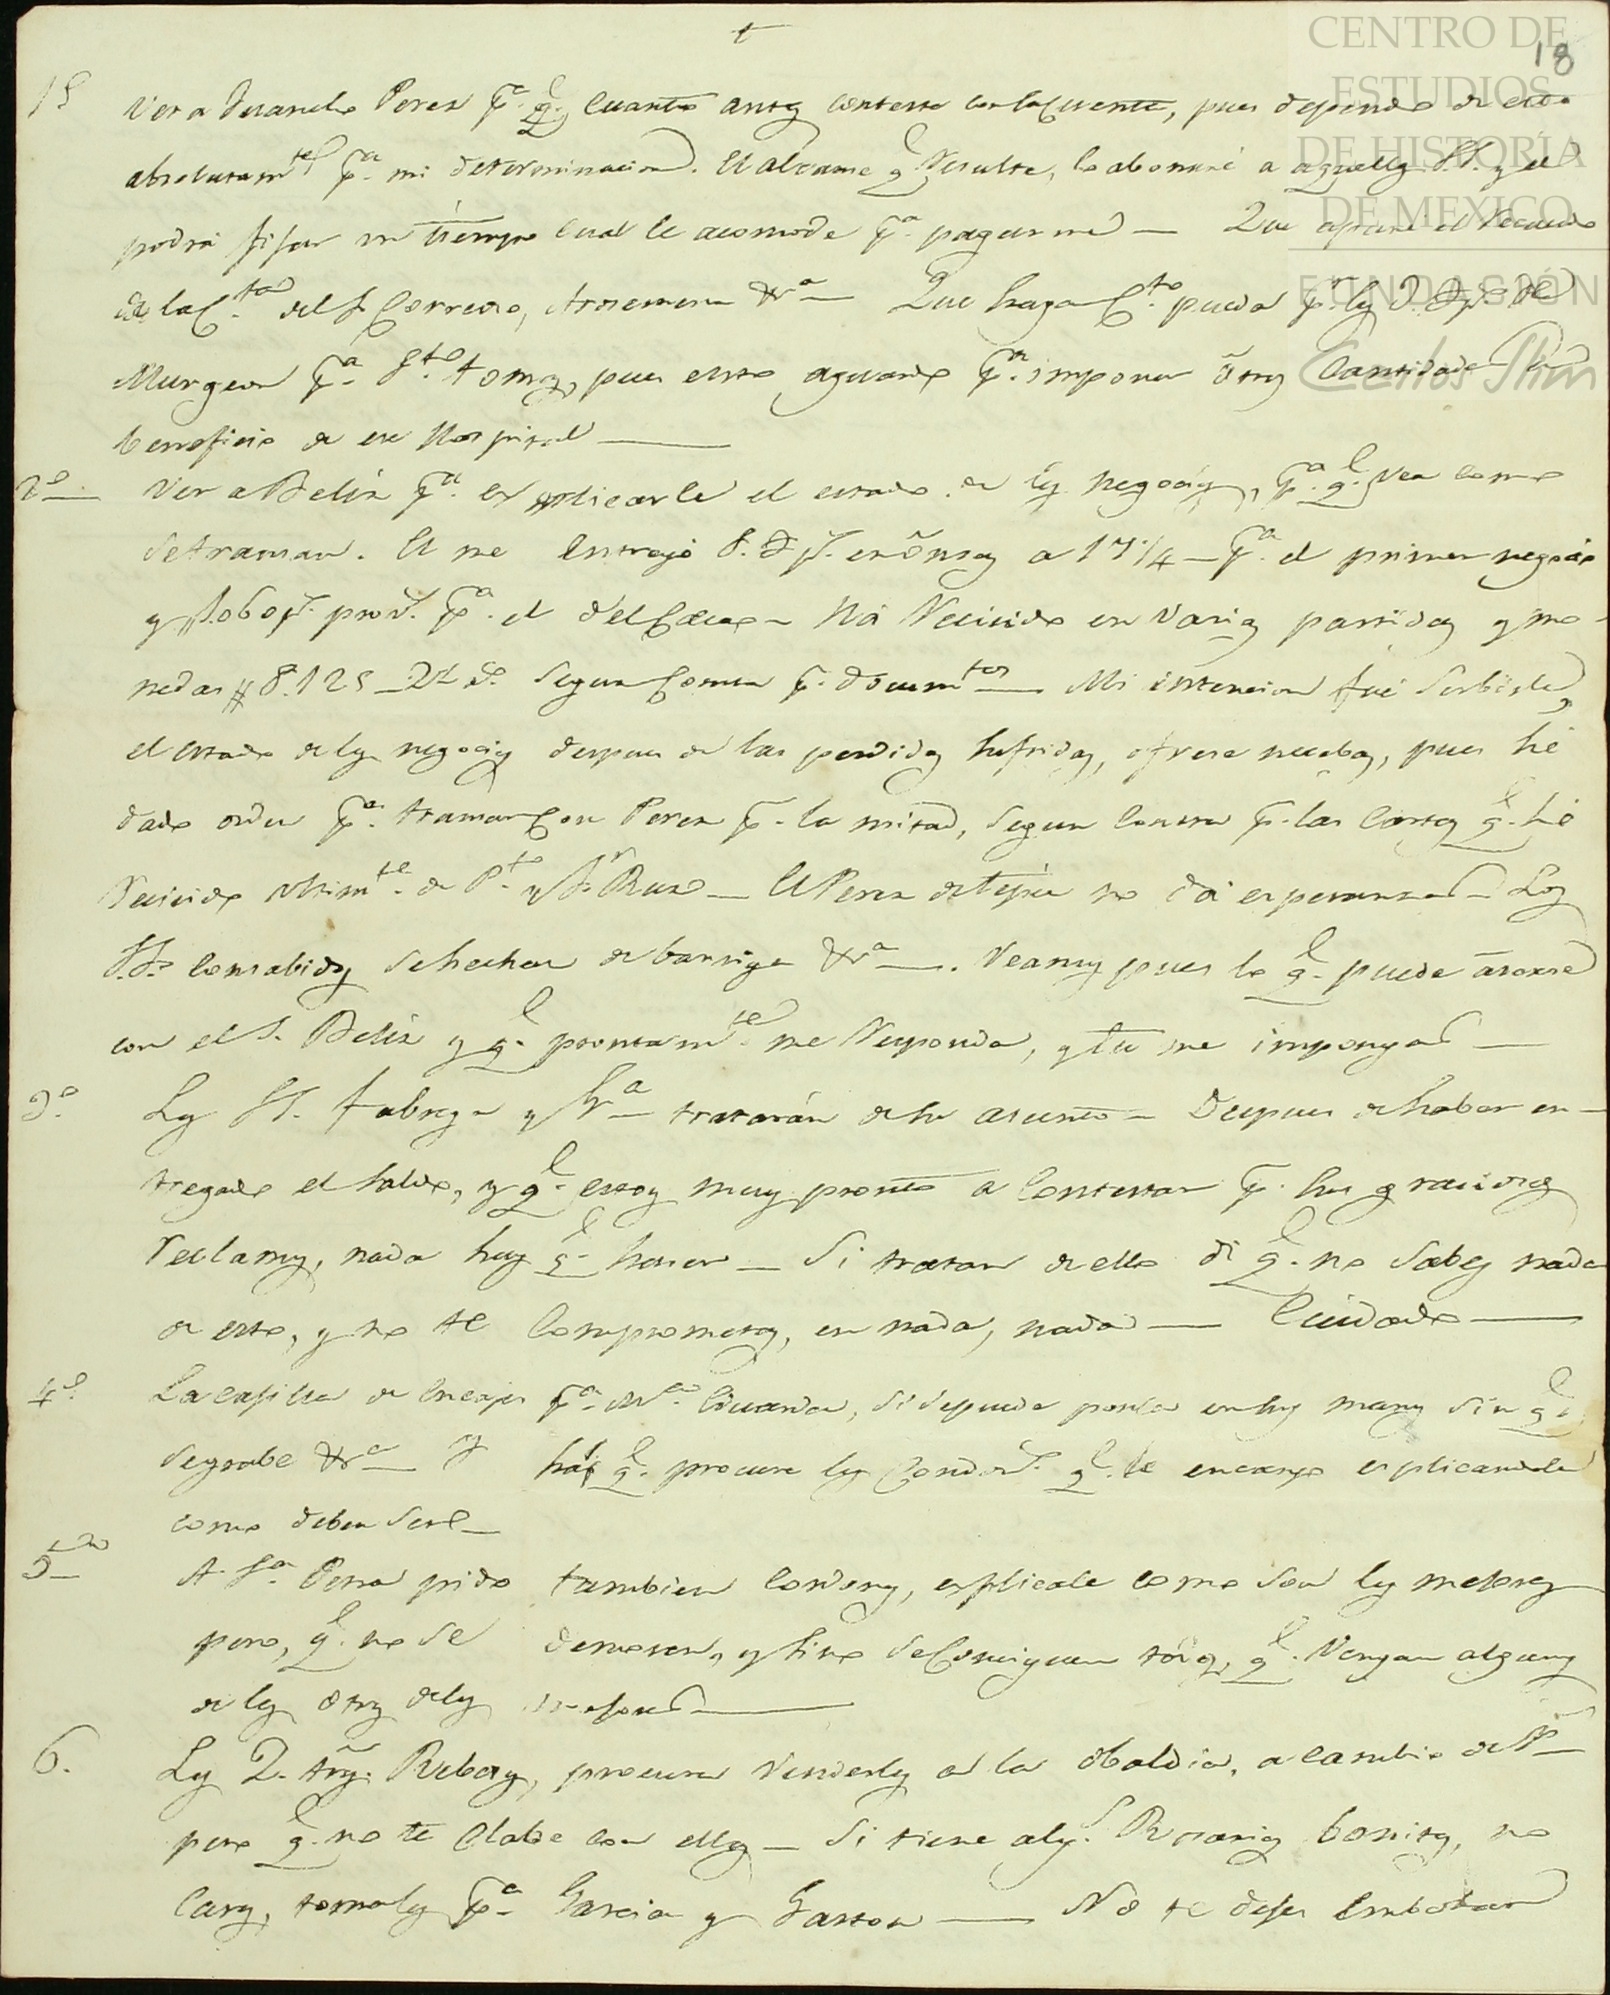 18
CENTRO DE
ESTUDIOS
DE HISTORIA
DE MEXICO
FUNDACIÓN
Carlos Slim
1º Ver a Perez pª q.e cuanto antes conteste con la cuenta, pues depende de esto
absolutam.te pª mi determinacion. El alcance q.e resulte, lo abonaré a aquellos SS. y el
podrá fijar un tiempo cual le acomode pª pagarme — Que apure el recaudo
de la C.ta del S. Correoso, &ª — Que haga C.to pueda pr los
Murgeon pª S.to tomas, pues esto aguardo pª imponer otras cantidades en
beneficio de ese Hospital —
2º — Ver a Belin pª explicarle el estado de los negocios, pª q.e vea como
se traman. El me entregó 8. en onzas a 17¼ — pª el primer negocio
y pª el del Cacao — Há recivido en varias partidas y mo-
nedas $ 8.125 — 2 rs segun consta pr docum.tos — Mi intencion fué servirle,
el estado de los negocios despues de las perdidas sufridas, ofrece nuebas, pues hé
dado orden pª tramar con Perez pr la mitad, segun consta pr las cartas q.e hé
recivido ultimam.te de P.to y Sr Ruso — El Perez de Tepic no dá esperanzas — Los
SS. consabidos se hechan de barriga &ª —. Veamos pues lo q.e puede acerse
con el S. Belin y q.e prontam.te me responda, y tu me impongas —
3º Los SS. Fabrega y Gª — tratarán de su asunto — Despues de haber en-
tregado el saldo, y q.e estoy muy pronto a contestar pr sus graciosos
reclamos, nada hay q.e hacer — Si tratan de ello di q.e no sabes nada
de esto, y no te comprometas, en nada, nada — Cuidado —
4º La cajilla de encajes pª Mª Eduarda, si se puede ponla en sus manos sin q.e
se grabe &ª — Y haz q.e procure los q.e le encargo esplicandole
como deben ser —
5º — A Sª Pera pido tambien cordones, esplicale como son los mejores
pero, q.e no se demoren, y sino se consiguen todos, q.e vengan algunos
de los otros de los mejores —
6. Los 2. Rebozos, procura venderlos a la Obaldia, a cambio de P —
pero q.e no te clabe con ellos — Si tiene alg.s Rosarios bonitos, no
caros, tomalos pª Garcia y Gaston — No te dejes embobar